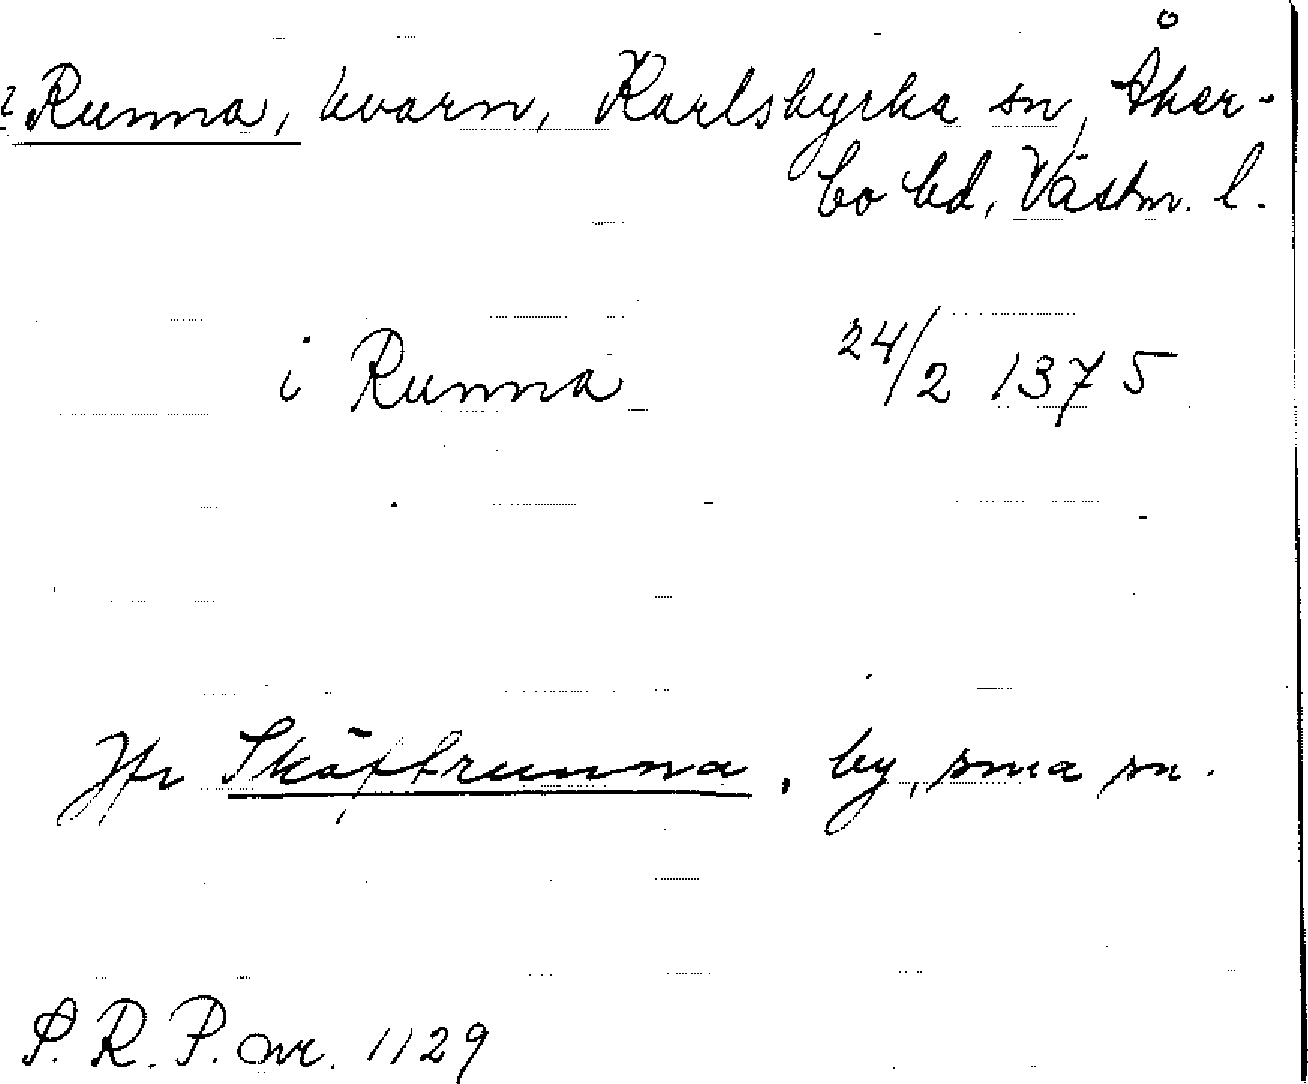 ? Runna, kvarn, Karlskyrka sn, Åker-
bo hd, Västm. l.
i Runna 24/2 1375
Jfr Skäftrunna, by, sma sn.
S. R. P. nr. 1129